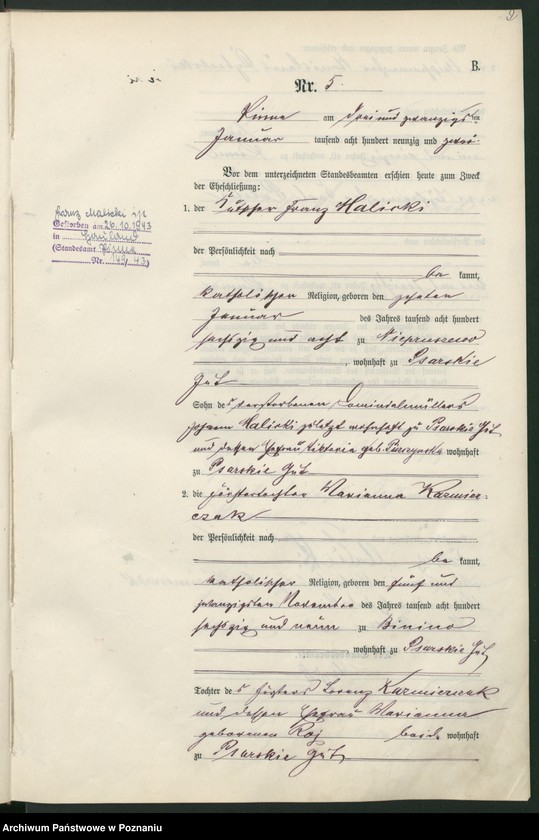 2
B.
Nr. 5.
Pinne am drei und zwanzigsten
Januar tausend acht hundert neunzig und zwei
Vor dem unterzeichneten Standesbeamten erschien heute zum Zweck
der Eheschließung:
1. der Kutscher Franz Malicki
der Persönlichkeit nach
be kannt,
katholischer Religion, geboren den zehnten
Januar des Jahres tausend acht hundert
sechszig und acht zu Niepruszewo
, wohnhaft zu Psarskie
Gut
Sohn des verstorbenen Dominialmüllers
Malicki zuletzt wohnhaft zu Psarskie Gut
und dessen Ehefrau Viktoria geb. wohnhaft
zu Psarskie Gut
2. die Marianna Kazmier-
czak
der Persönlichkeit nach
be kannt,
katholischer Religion, geboren den fünf und
zwanzigsten November des Jahres tausend acht hundert
sechszig und neun zu Binino
, wohnhaft zu Psarskie Gut
Tochter des Lorenz Kazmierczak
und dessen Ehefrau Marianna
geborenen Roj beide wohnhaft
zu Psarskie Gut
Franz Malicki ist
Gestorben am 26.10.1943
in
(Standesamt Pinne
Nr. 149/43)
Archiwum Państwowe w Poznaniu